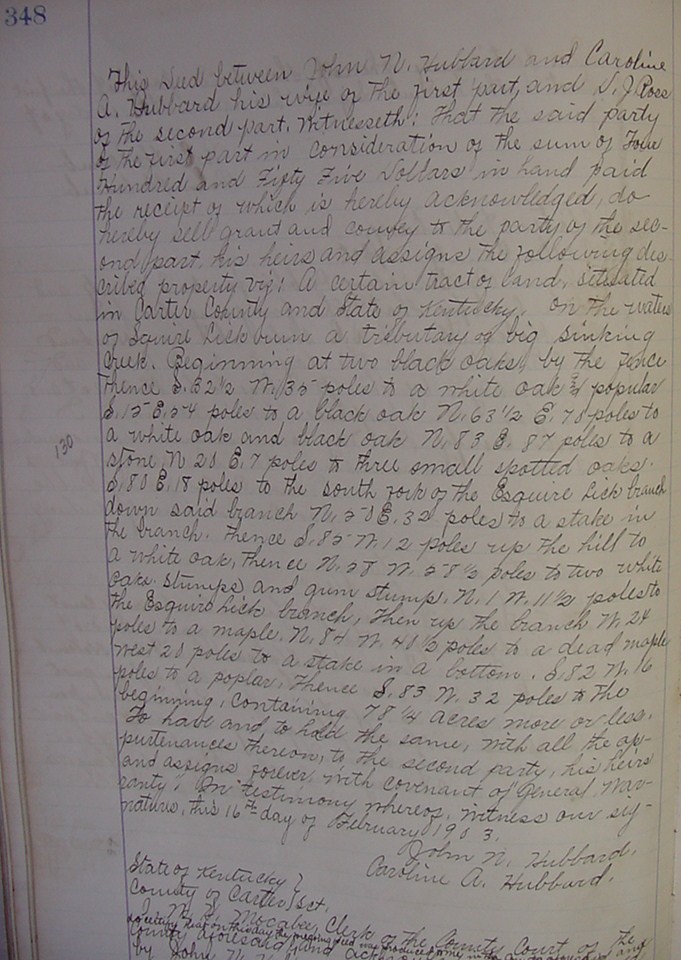 348
This Deed between John N. Hubbard and Caroline
A. Hubbard his wife of the first part, and D. J. Ross
of the second part. Witnesseth: That the said party
of the first part in consideration of the sum of Four
Hundred and Fifty Five Dollars in hand paid
the receipt of which is hereby acknowledged, do
hereby sell grant and convey to the party of the sec-
ond part, his heirs and assigns the following des-
cribed property viz: A certain tract of land, situated
in Carter County and State of Kentucky. On the waters
of Squire Lick run a tributary of big sinking
Creek. Beginning at two black oaks, by the fence
thence S. 32½ W. 35 poles to a white oak & popular
S. 15 E. 54 poles to a black oak N. 63½ E. 78 poles to
a white oak and black oak N. 83 E. 87 poles to a
130
stone, N 20 E. 7 poles to three small spotted oaks.
S. 80 E. 18 poles to the south fork of the Esquire Lick branch
down said branch N. 50 E. 32 poles to a stake in
the branch. Thence S. 85 W. 12 poles up the hill to
a white oak, thence N. 28 W. 58½ poles to two white
oaks stumps and gum stump, N. 1 W. 11½ poles to
the Esquire Lick branch, then up the branch W. 24
poles to a maple. N. 84 W. 40½ poles to a dead maple
West 20 poles to a stake in a bottom. S. 82 W. 16
poles to a poplar, Thence S. 83 W. 32 poles to the
beginning, containing 78¼ acres more or less.
To have and to hold the same, with all the ap-
purtenances thereon, to the second party, his heirs
and assigns forever, with covenant of General War-
ranty. In testimony whereof, witness our sig-
natures, this 16th day of February 1903.
John N. Hubbard.
Caroline A. Hubbard.
State of Kentucky }
County of Carter } Sct.
I, Mocabee, Clerk of the County Court of the
do certify that on this day the foregoing deed was produced to me in the
County aforesaid and
by John